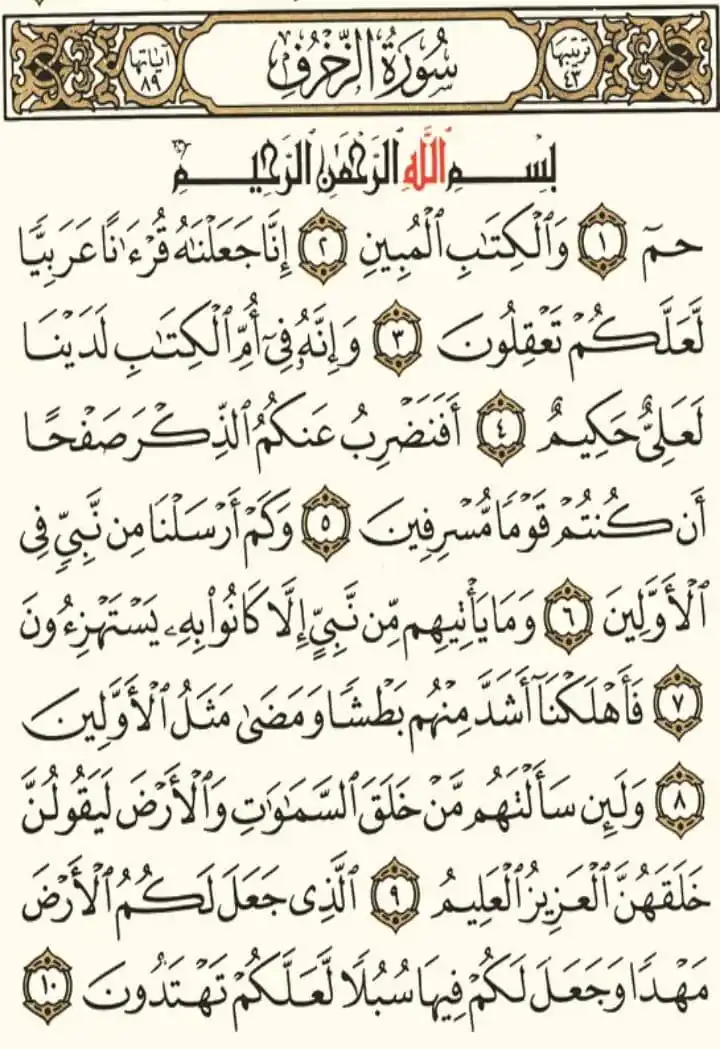 ترتيبها ٤٣ سُورَةُ الزُّخْرُفِ آياتها ٨٩
بِسْمِ ٱللَّهِ ٱلرَّحْمَٰنِ ٱلرَّحِيمِ
حمٓ ١ وَٱلْكِتَٰبِ ٱلْمُبِينِ ٢ إِنَّا جَعَلْنَٰهُ قُرْءَٰنًا عَرَبِيًّا
لَّعَلَّكُمْ تَعْقِلُونَ ٣ وَإِنَّهُۥ فِىٓ أُمِّ ٱلْكِتَٰبِ لَدَيْنَا
لَعَلِىٌّ حَكِيمٌ ٤ أَفَنَضْرِبُ عَنكُمُ ٱلذِّكْرَ صَفْحًا
أَن كُنتُمْ قَوْمًا مُّسْرِفِينَ ٥ وَكَمْ أَرْسَلْنَا مِن نَّبِىٍّ فِى
ٱلْأَوَّلِينَ ٦ وَمَا يَأْتِيهِم مِّن نَّبِىٍّ إِلَّا كَانُوا۟ بِهِۦ يَسْتَهْزِءُونَ
٧ فَأَهْلَكْنَآ أَشَدَّ مِنْهُم بَطْشًا وَمَضَىٰ مَثَلُ ٱلْأَوَّلِينَ
٨ وَلَئِن سَأَلْتَهُم مَّنْ خَلَقَ ٱلسَّمَٰوَٰتِ وَٱلْأَرْضَ لَيَقُولُنَّ
خَلَقَهُنَّ ٱلْعَزِيزُ ٱلْعَلِيمُ ٩ ٱلَّذِى جَعَلَ لَكُمُ ٱلْأَرْضَ
مَهْدًا وَجَعَلَ لَكُمْ فِيهَا سُبُلًا لَّعَلَّكُمْ تَهْتَدُونَ ١٠